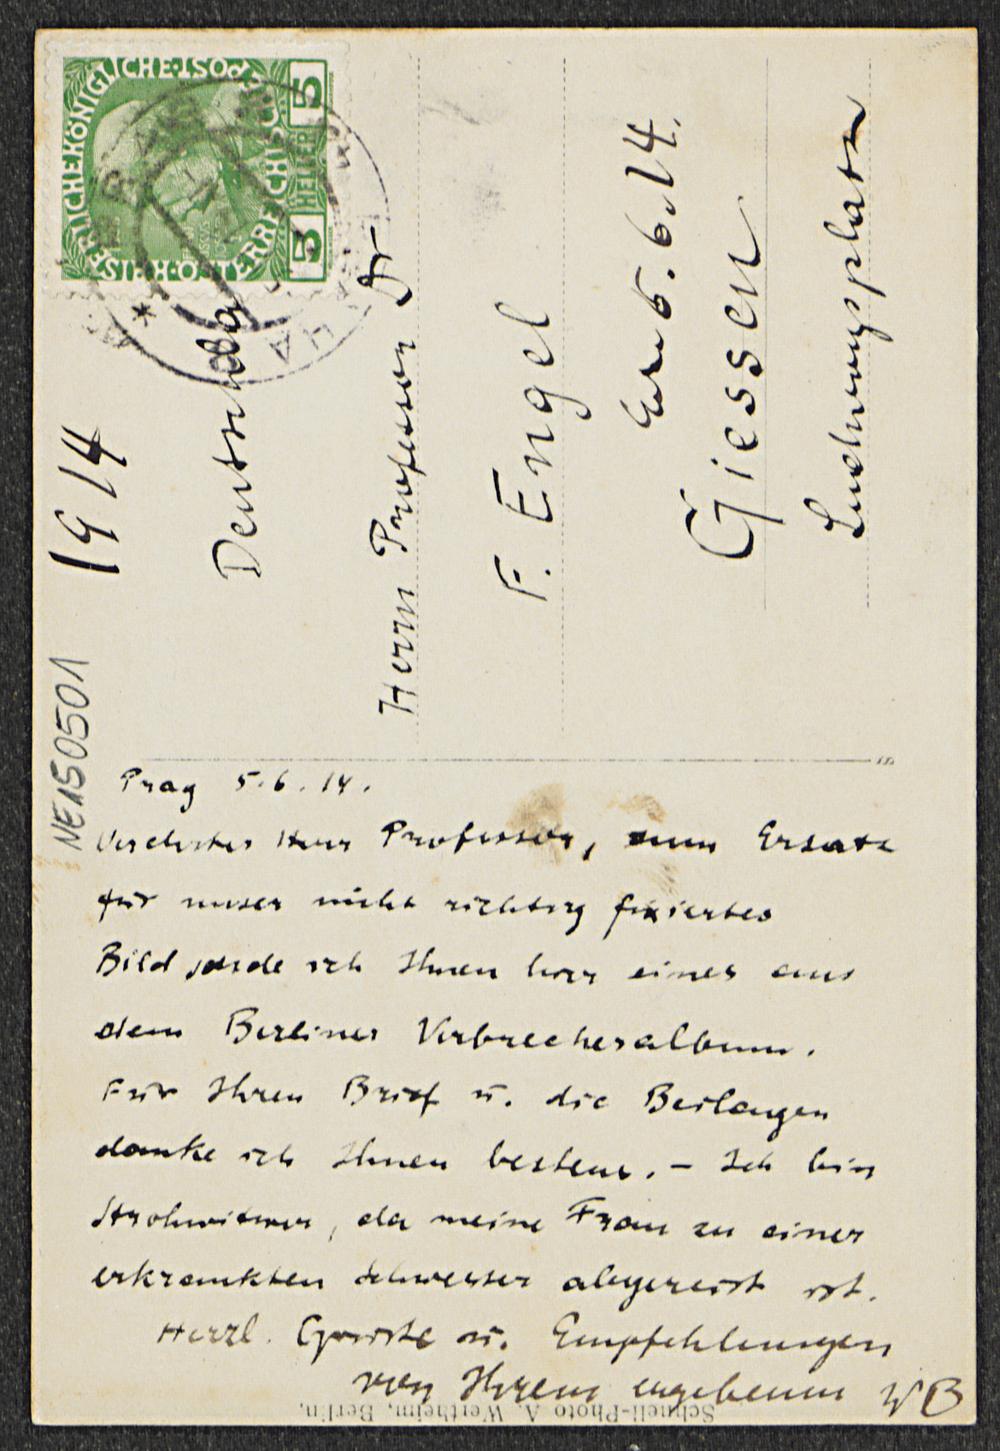 KAISERLICHEKÖNIGLICHE·ÖSTERREICHISCHE·POST
5 HELLER 5
1914
NE150501
Deutschld
Herrn Professor Dr
F. Engel
Erh 6.6.14.
Giessen
Ludwigsplatz
Prag 5.6.14.
Verehrter Herr Professor, zum Ersatz
für unser nicht richtig fixiertes
Bild sende ich Ihnen hier eines aus
dem Berliner Verbrecheralbum.
Für Ihren Brief u. die Beilagen
danke ich Ihnen bestens. – Ich bin
Strohwitwer, da meine Frau zu einer
erkrankten Schwester abgereist ist.
Herzl. Grüsse u. Empfehlungen
von Ihrem ergebenen WB
Schnell-Photo A. Wertheim, Berlin.